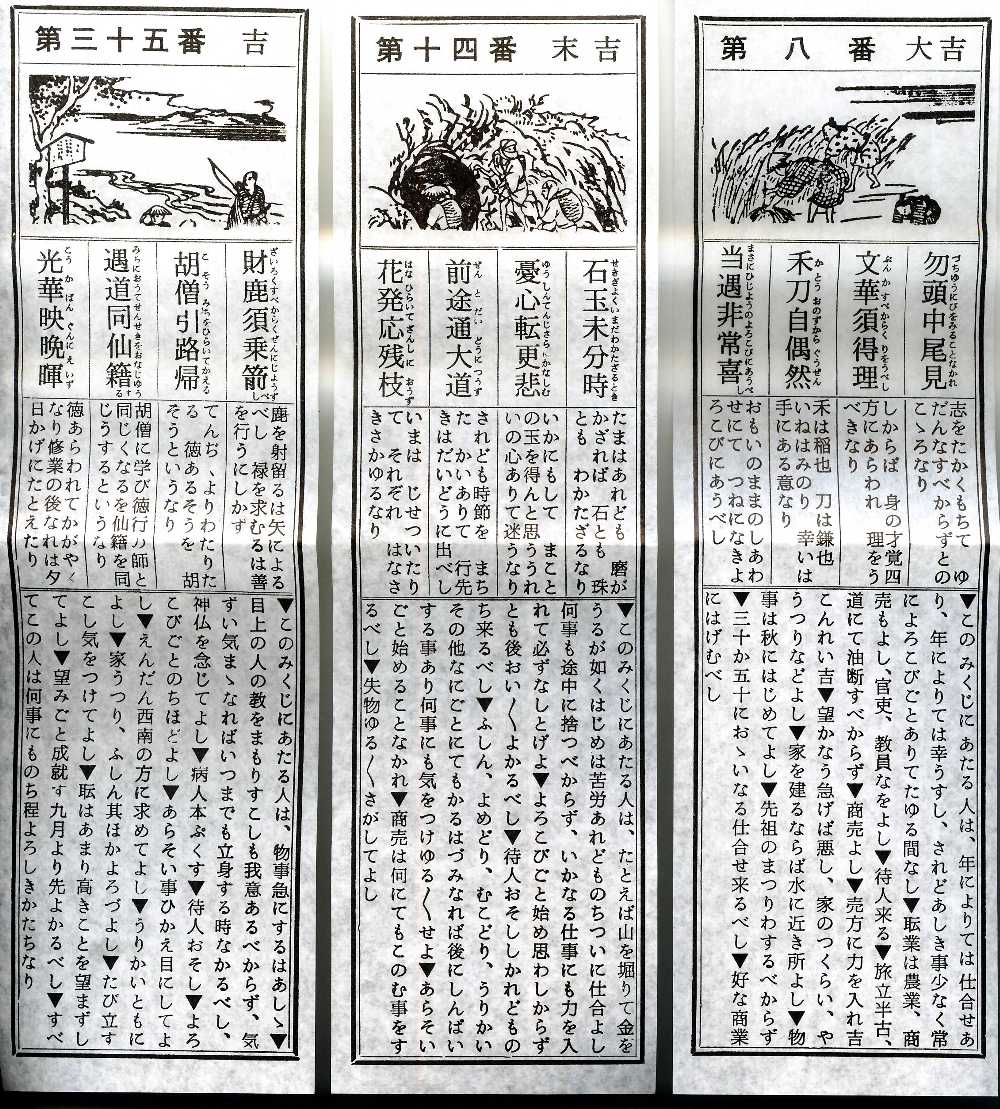 第八番 大吉
勿頭中尾見
文華須得理
禾刀自偶然
当遇非常喜
志をたかくもちて ゆ
だんなすべからずとの
こゝろなり
しからば 身の才覚四
方にあらわれ 理をう
べきなり
禾は稲也 刀は鎌也
いねはみのり 幸いは
手にある意なり
おもいのままのしあわ
せにて つねになきよ
ろこびにあうべし
▼このみくじにあたる人は、年によりては仕合せあ
り、年によりては幸うすし、されどあしき事少なく常
によろこびごとありてたゆる間なし▼転業は農業、商
売もよし、官吏、教員なをよし▼待人来る▼旅立半吉、
道にて油断すべからず▼商売よし▼売方に力を入れ吉
こんれい吉▼望かなう急げば悪し、家のつくらい、や
うつりなどよし▼家を建るならば水に近き所よし▼物
事は秋にはじめてよし▼先祖のまつりわするべからず
▼三十か五十におゝいなる仕合せ来るべし▼好な商業
にはげむべし
第十四番 末吉
石玉未分時
憂心転更悲
前途通大道
花発応残枝
たまはあれども 磨が
かざれば 石とも 珠
とも わかたざるなり
いかにもして まこと
の玉を得んと思ううれ
いの心ありて迷うなり
されども時節を まち
たたかいありて 行先
きはだいどうに出べし
いまは じせついたり
て それぞれ はなさ
きさかゆるなり
▼このみくじにあたる人は、たとえば山を堀りて金を
うるが如くはじめは苦労あれどものちついに仕合よし
何事も途中に捨つべからず、いかなる仕事にも力を入
れて必ずなしとげよ▼よろこびごと始め思わしからず
とも後おい〱よかるべし▼待人おそししかれどもの
ち来るべし▼ふしん、よめどり、むこどり、うりかい
その他なにごとにてもかるはづみなれば後にしんぱい
する事あり何事にも気をつけゆる〱せよ▼あらそい
ごと始めることなかれ▼商売は何にてもこのむ事をす
るべし▼失物ゆる〱さがしてよし
第三十五番 吉
財鹿須乗箭
胡僧引路帰
遇道同仙籍
光華映晩暉
鹿を射留るは矢による
べし 禄を求むるは善
を行うにしかず
てんぢゝよりわたりた
る 徳あるそうを 胡
そうというなり
胡僧に学び徳行の師と
同じくなるを仙籍を同
じうするというなり
徳あらわれてかがやく
なり修業の後なれは夕
日かげにたとえたり
▼このみくじにあたる人は、物事急にするはあしゝ▼
目上の人の教をまもりすこしも我意あるべからず、気
ずい気まゝなればいつまでも立身する時なかるべし、
神仏を念じてよし▼病人本ぷくす▼待人おそし▼よろ
こびごとのちほどよし▼あらそい事ひかえ目にしてよ
し▼えんだん西南の方に求めてよし▼うりかいともに
よし▼家うつり、ふしん其ほかよろづよし▼たび立す
こし気をつけてよし▼転はあまり高きことを望まずし
てよし▼望みごと成就す九月より先よかるべし▼すべ
てこの人は何事にものち程よろしきかたちなり